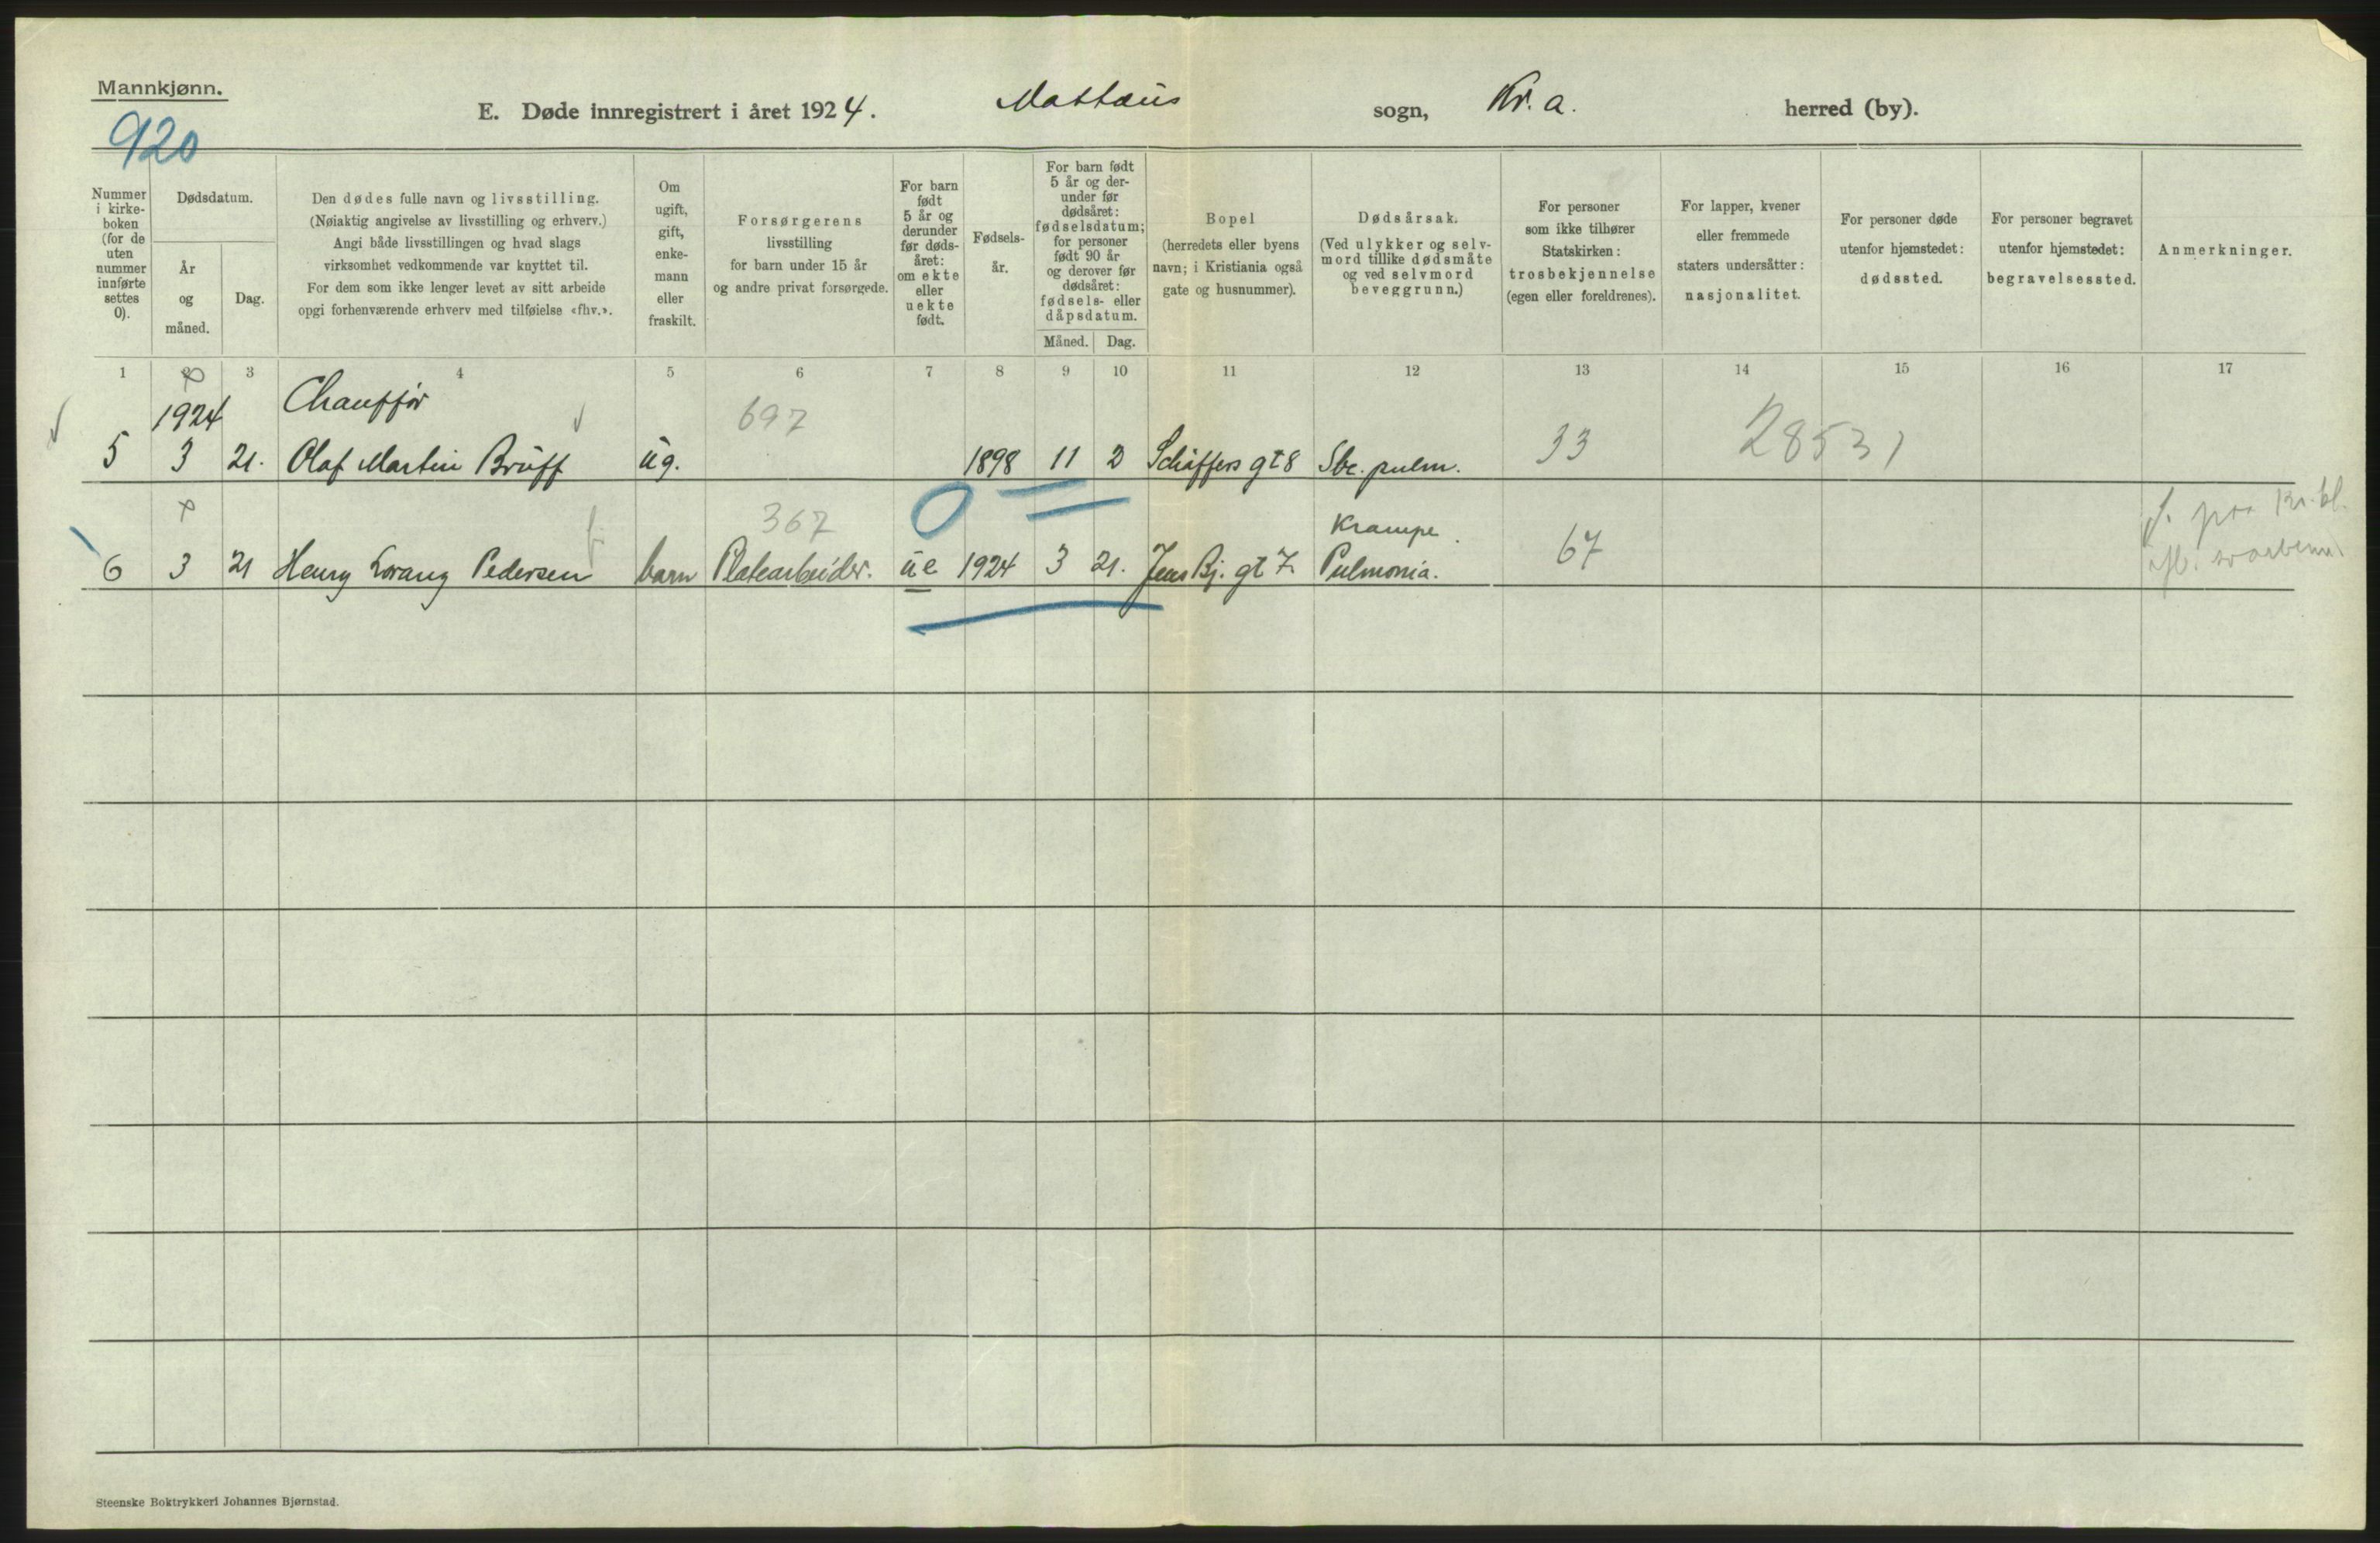 Mannkjønn.
920
E. Døde innregistrert i året 1924. Mattæus sogn, Kr.a. herred (by).
Nummer
i kirke-
boken
(for de
uten
nummer
innførte
settes
0).
Dødsdatum.
År
og
måned.
Dag.
Den dødes fulle navn og livsstilling.
(Nøiaktig angivelse av livsstilling og erhverv.)
Angi både livsstillingen og hvad slags
virksomhet vedkommende var knyttet til.
For dem som ikke lenger levet av sitt arbeide
opgi forhenværende erhverv med tilføielse «fhv.».
Om
ugift,
gift,
enke-
mann
eller
fraskilt.
Forsørgerens
livsstilling
for barn under 15 år
og andre privat forsørgede.
For barn
født
5 år og
derunder
før døds-
året:
om ekte
eller
uekte
født.
Fødsels-
år.
For barn født
5 år og der-
under før
dødsåret:
fødselsdatum;
for personer
født 90 år
og derover før
dødsåret:
fødsels- eller
dåpsdatum.
Måned. Dag.
Bopel
(herredets eller byens
navn; i Kristiania også
gate og husnummer).
Dødsårsak.
(Ved ulykker og selv-
mord tillike dødsmåte
og ved selvmord
beveggrunn.)
For personer
som ikke tilhører
Statskirken:
trosbekjennelse
(egen eller foreldrenes).
For lapper, kvener
eller fremmede
staters undersåtter:
nasjonalitet.
For personer døde
utenfor hjemstedet:
dødssted.
For personer begravet
utenfor hjemstedet:
begravelsessted.
Anmerkninger.
1 2 3 4 5 6 7 8 9 10 11 12 13 14 15 16 17
1924 Chauffør 697
5 3 21. Olaf Martin Brüff ug. 1898 11 2 Schäffers gt 8 Tbc. pulm. 33 28531
367 Krampe.
6 3 21 Henry Lorang Pedersen barn Platearbeider. ue 1924 3 21. Jens Bj. gt 7. Pulmonia. 67
Steenske Boktrykkeri Johannes Bjørnstad.